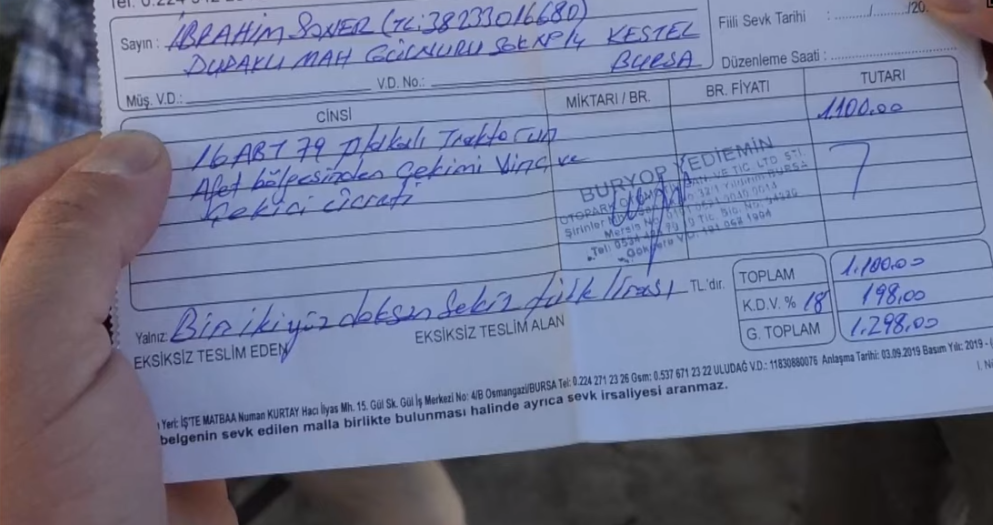 Sayın : İBRAHİM SONER (TC:38233016680)
DUDAKLI MAH GÜLNURU SOK NP14 KESTEL
BURSA
Fiili Sevk Tarihi : ......../......../20.
Düzenleme Saati :
Müş. V.D.: V.D. No.:
CİNSİ MİKTARI / BR. BR. FİYATI TUTARI
16 ABT 79 plakalı Traktörün 1.100.00
Afet bölgesinden Çekimi Vinç ve
Çekici ücreti
BURYOP YEDİEMİN
OTOPARK VE TİC LTD STİ
Şirinler Yıldırım BURSA
TOPLAM 1.100.00
K.D.V. % 18 198,00
G. TOPLAM 1.298,00
Yalnız: Bin ikiyüz doksan Sekiz türk lirası TL'dir.
EKSİKSİZ TESLİM EDEN EKSİKSİZ TESLİM ALAN
Yeri: İŞ'TE MATBAA Numan KURTAY Hacı İlyas Mh. 15. Gül Sk. Gül İş Merkezi No: 4/B Osmangazi/BURSA Tel: 0.224 271 23 26 Gsm: 0.537 671 23 22 ULUDAĞ V.D.: 11830880076 Anlaşma Tarihi: 03.09.2019 Basım Yılı: 2019 -
belgenin sevk edilen malla birlikte bulunması halinde ayrıca sevk irsaliyesi aranmaz.